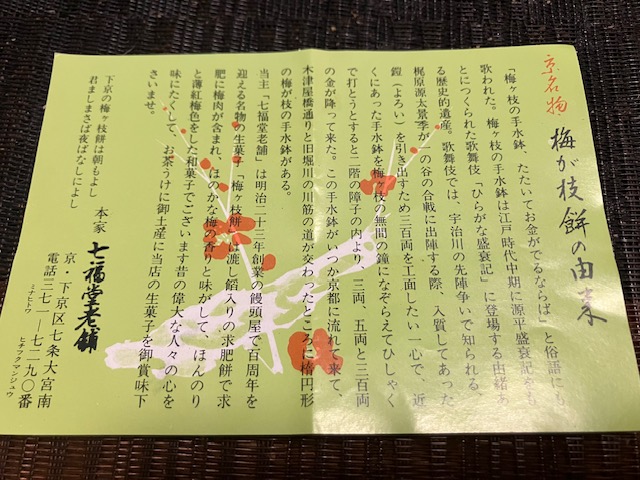 京名物
梅が枝餅の由来
「梅ヶ枝の手水鉢、たたいてお金がでるならば」と俗語にも
歌われた。梅ヶ枝の手水鉢は江戸時代中期に源平盛衰記をも
とにつくられた歌舞伎「ひらがな盛衰記」に登場する由緒あ
る歴史的遺産。歌舞伎では、宇治川の先陣争いで知られる、
梶原源太景季が一の谷の合戦に出陣する際、入質してあった
鎧（よろい）を引き出すため三百両を工面したい一心で、近
くにあった手水鉢を梅ヶ枝の無間の鐘になぞらえてひしゃく
で打とうとすると二階の障子の内より、三両、五両と三百両
の金が降って来た。この手水鉢がいつか京都に流れて来て、
木津屋橋通りと旧堀川の川筋の道が交わったところに楕円形
の梅が枝の手水鉢がある。
当主「七福堂老舗」は明治二十三年創業の饅頭屋で百周年を
迎える名物の生菓子「梅ヶ枝餅」は漉し餡入りの求肥餅で求
肥に梅肉が含まれ、ほのかな梅の香りと味がして、ほんのり
と薄紅梅色をした和菓子でございます昔の偉大な人々の心を
味にたくして、お茶うけに御土産に当店の生菓子を御賞味下
さいませ。
下京の梅ヶ枝餅は朝もよし
君ましまさば夜ばなしによし
本家 七福堂老舗
京・下京区七条大宮南
電話三七一―七二九〇番
ミナヒトワ ヒチフクマンジュウ